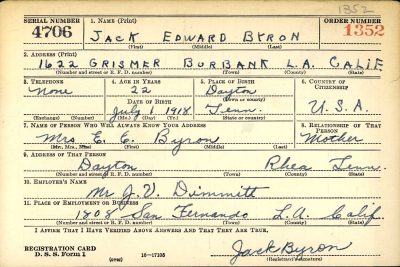 1352
SERIAL NUMBER 1. NAME (Print) ORDER NUMBER
4706 JACK EDWARD BYRON 1352
(First) (Middle) (Last)
2. ADDRESS (Print)
1622 GRISMER BURBANK L.A. CALIF
(Number and street or R. F. D. number) (Town) (County) (State)
3. TELEPHONE 4. AGE IN YEARS 5. PLACE OF BIRTH 6. COUNTRY OF CITIZENSHIP
None 22 Dayton
DATE OF BIRTH (Town or county)
July 1 1918 Tenn. U.S.A.
(Exchange) (Number) (Mo.) (Day) (Yr.) (State or country)
7. NAME OF PERSON WHO WILL ALWAYS KNOW YOUR ADDRESS 8. RELATIONSHIP OF THAT PERSON
Mrs E. C. Byron Mother
(Mr., Mrs., Miss) (First) (Middle) (Last)
9. ADDRESS OF THAT PERSON
Dayton Rhea Tenn.
(Number and street or R. F. D. number) (Town) (County) (State)
10. EMPLOYER'S NAME
Mr J. V. Dimmitt
11. PLACE OF EMPLOYMENT OR BUSINESS
1808 San Fernando L.A. Calif.
(Number and street or R. F. D. number) (Town) (County) (State)
I AFFIRM THAT I HAVE VERIFIED ABOVE ANSWERS AND THAT THEY ARE TRUE.
REGISTRATION CARD
D. S. S. Form 1 (over) 16-17105 Jack Byron
(Registrant's signature)